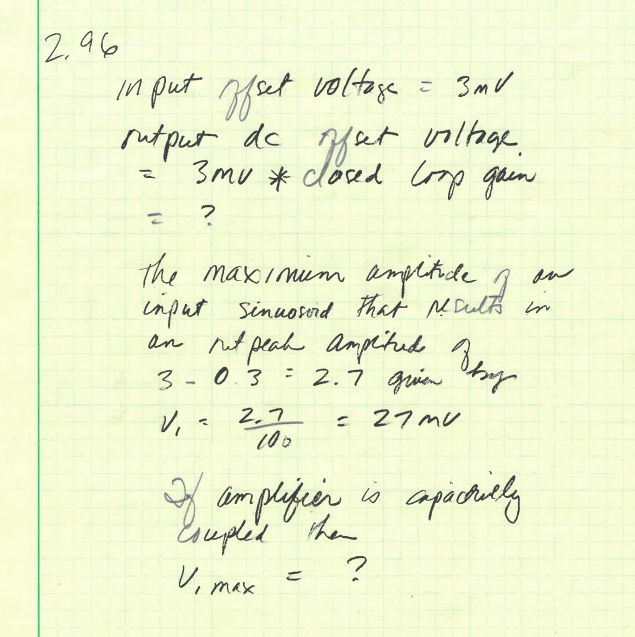 2.96
input offset voltage = 3mV
output dc offset voltage
= 3mV * closed loop gain
= ?
the maximum amplitude of an
input sinusoid that results in
an output peak amplitude of
3 - 0.3 = 2.7 given by
Vi = 2.7 / 100 = 27 mV
If amplifier is capacitively
coupled then
Vi max = ?